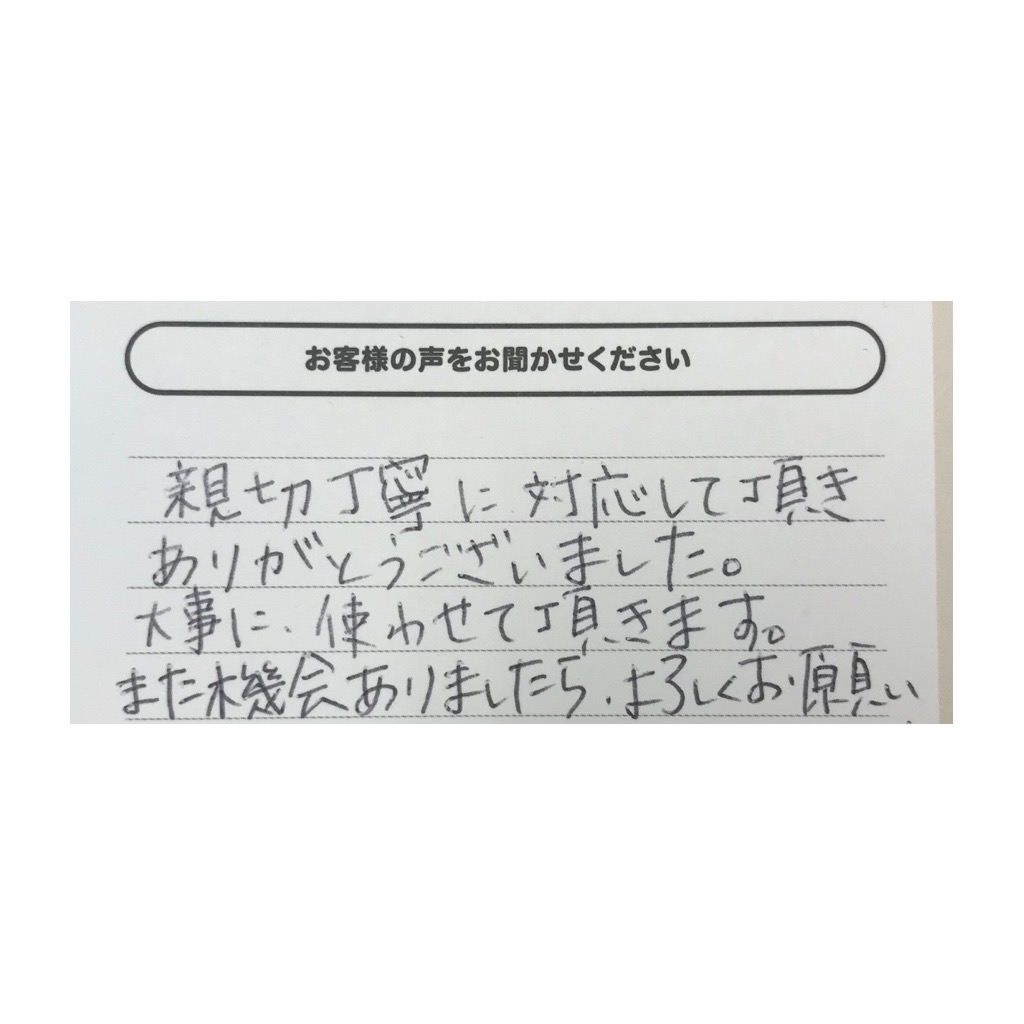 お客様の声をお聞かせください
親切丁寧に対応して頂き
ありがとうございました。
大事に、使わせて頂きます。
また機会ありましたら、よろしくお願い